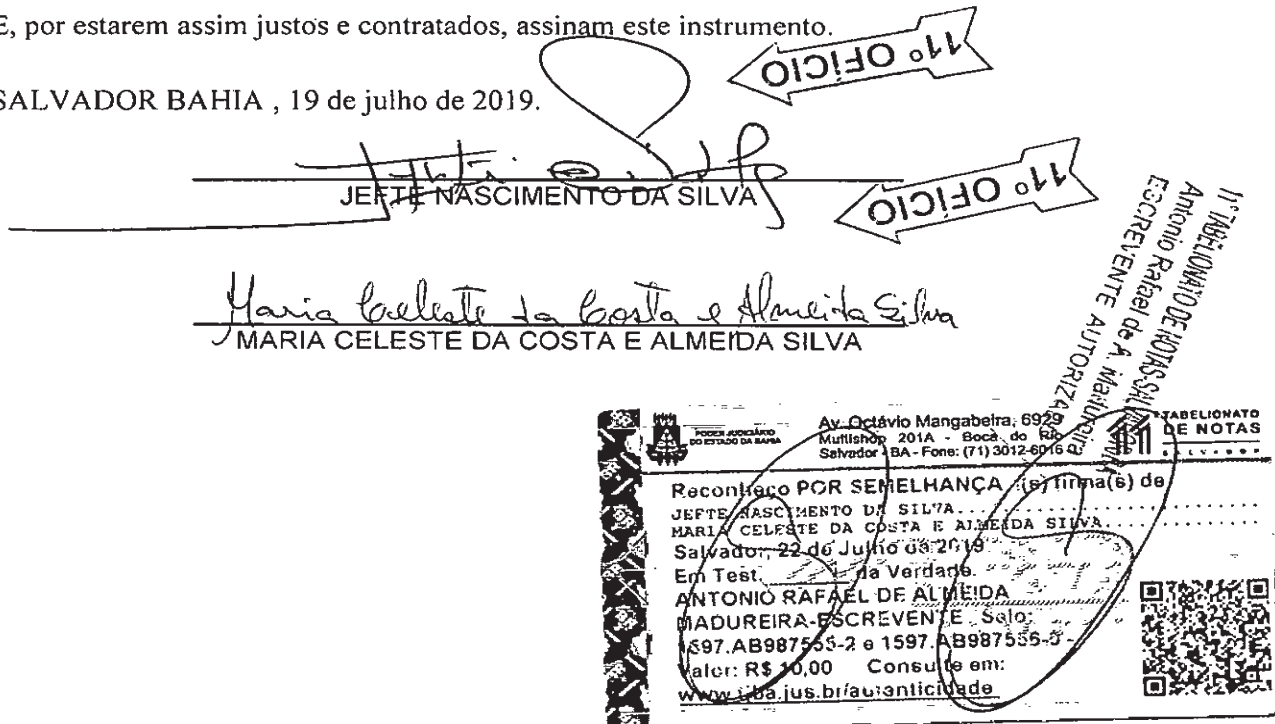 E, por estarem assim justos e contratados, assinam este instrumento.
11º OFÍCIO
SALVADOR BAHIA , 19 de julho de 2019.
JEFTE NASCIMENTO DA SILVA
11º OFÍCIO
Maria Celeste da Costa e Almeida Silva
MARIA CELESTE DA COSTA E ALMEIDA SILVA
11º TABELIONATO DE NOTAS-SALVADOR
Antonio Rafael de A. Madureira
ESCREVENTE AUTORIZA
PODER JUDICIÁRIO
DO ESTADO DA BAHIA
Av. Octávio Mangabeira, 6929
Multishop 201A - Boca do Rio
Salvador - BA - Fone: (71) 3012-6016
TABELIONATO
DE NOTAS
Reconheço POR SEMELHANÇA (s) firma(s) de
JEFTE NASCIMENTO DA SILVA
MARIA CELESTE DA COSTA E ALMEIDA SILVA
Salvador, 22 de Julho de 2019
Em Test. da Verdade.
ANTONIO RAFAEL DE ALMEIDA
MADUREIRA-ESCREVENTE Selo:
1597.AB987555-2 e 1597.AB987556-
Valor: R$ 10,00 Consulte em:
www.tjba.jus.br/autenticidade